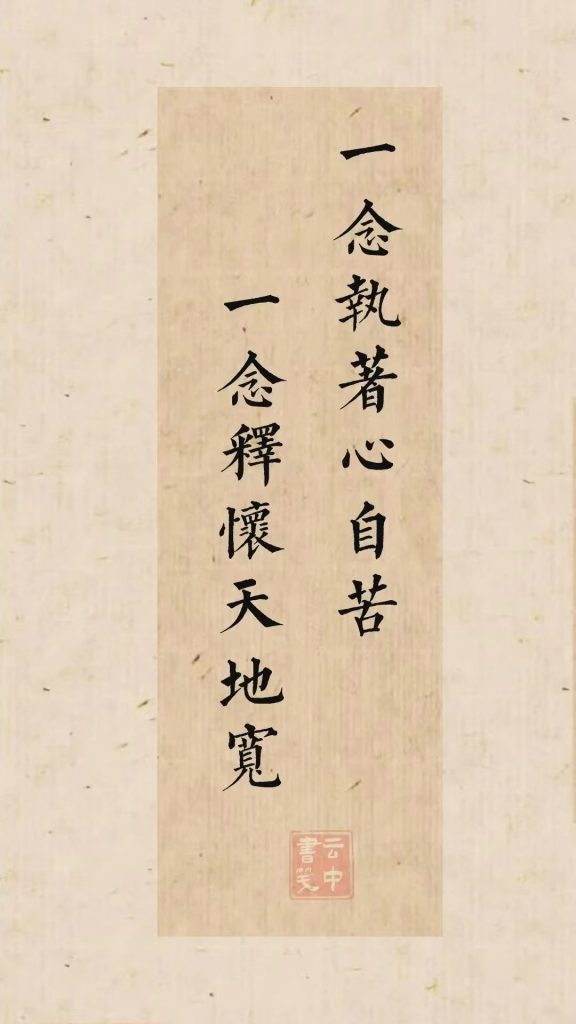 一念執著心自苦
一念釋懷天地寬
云中
書笺